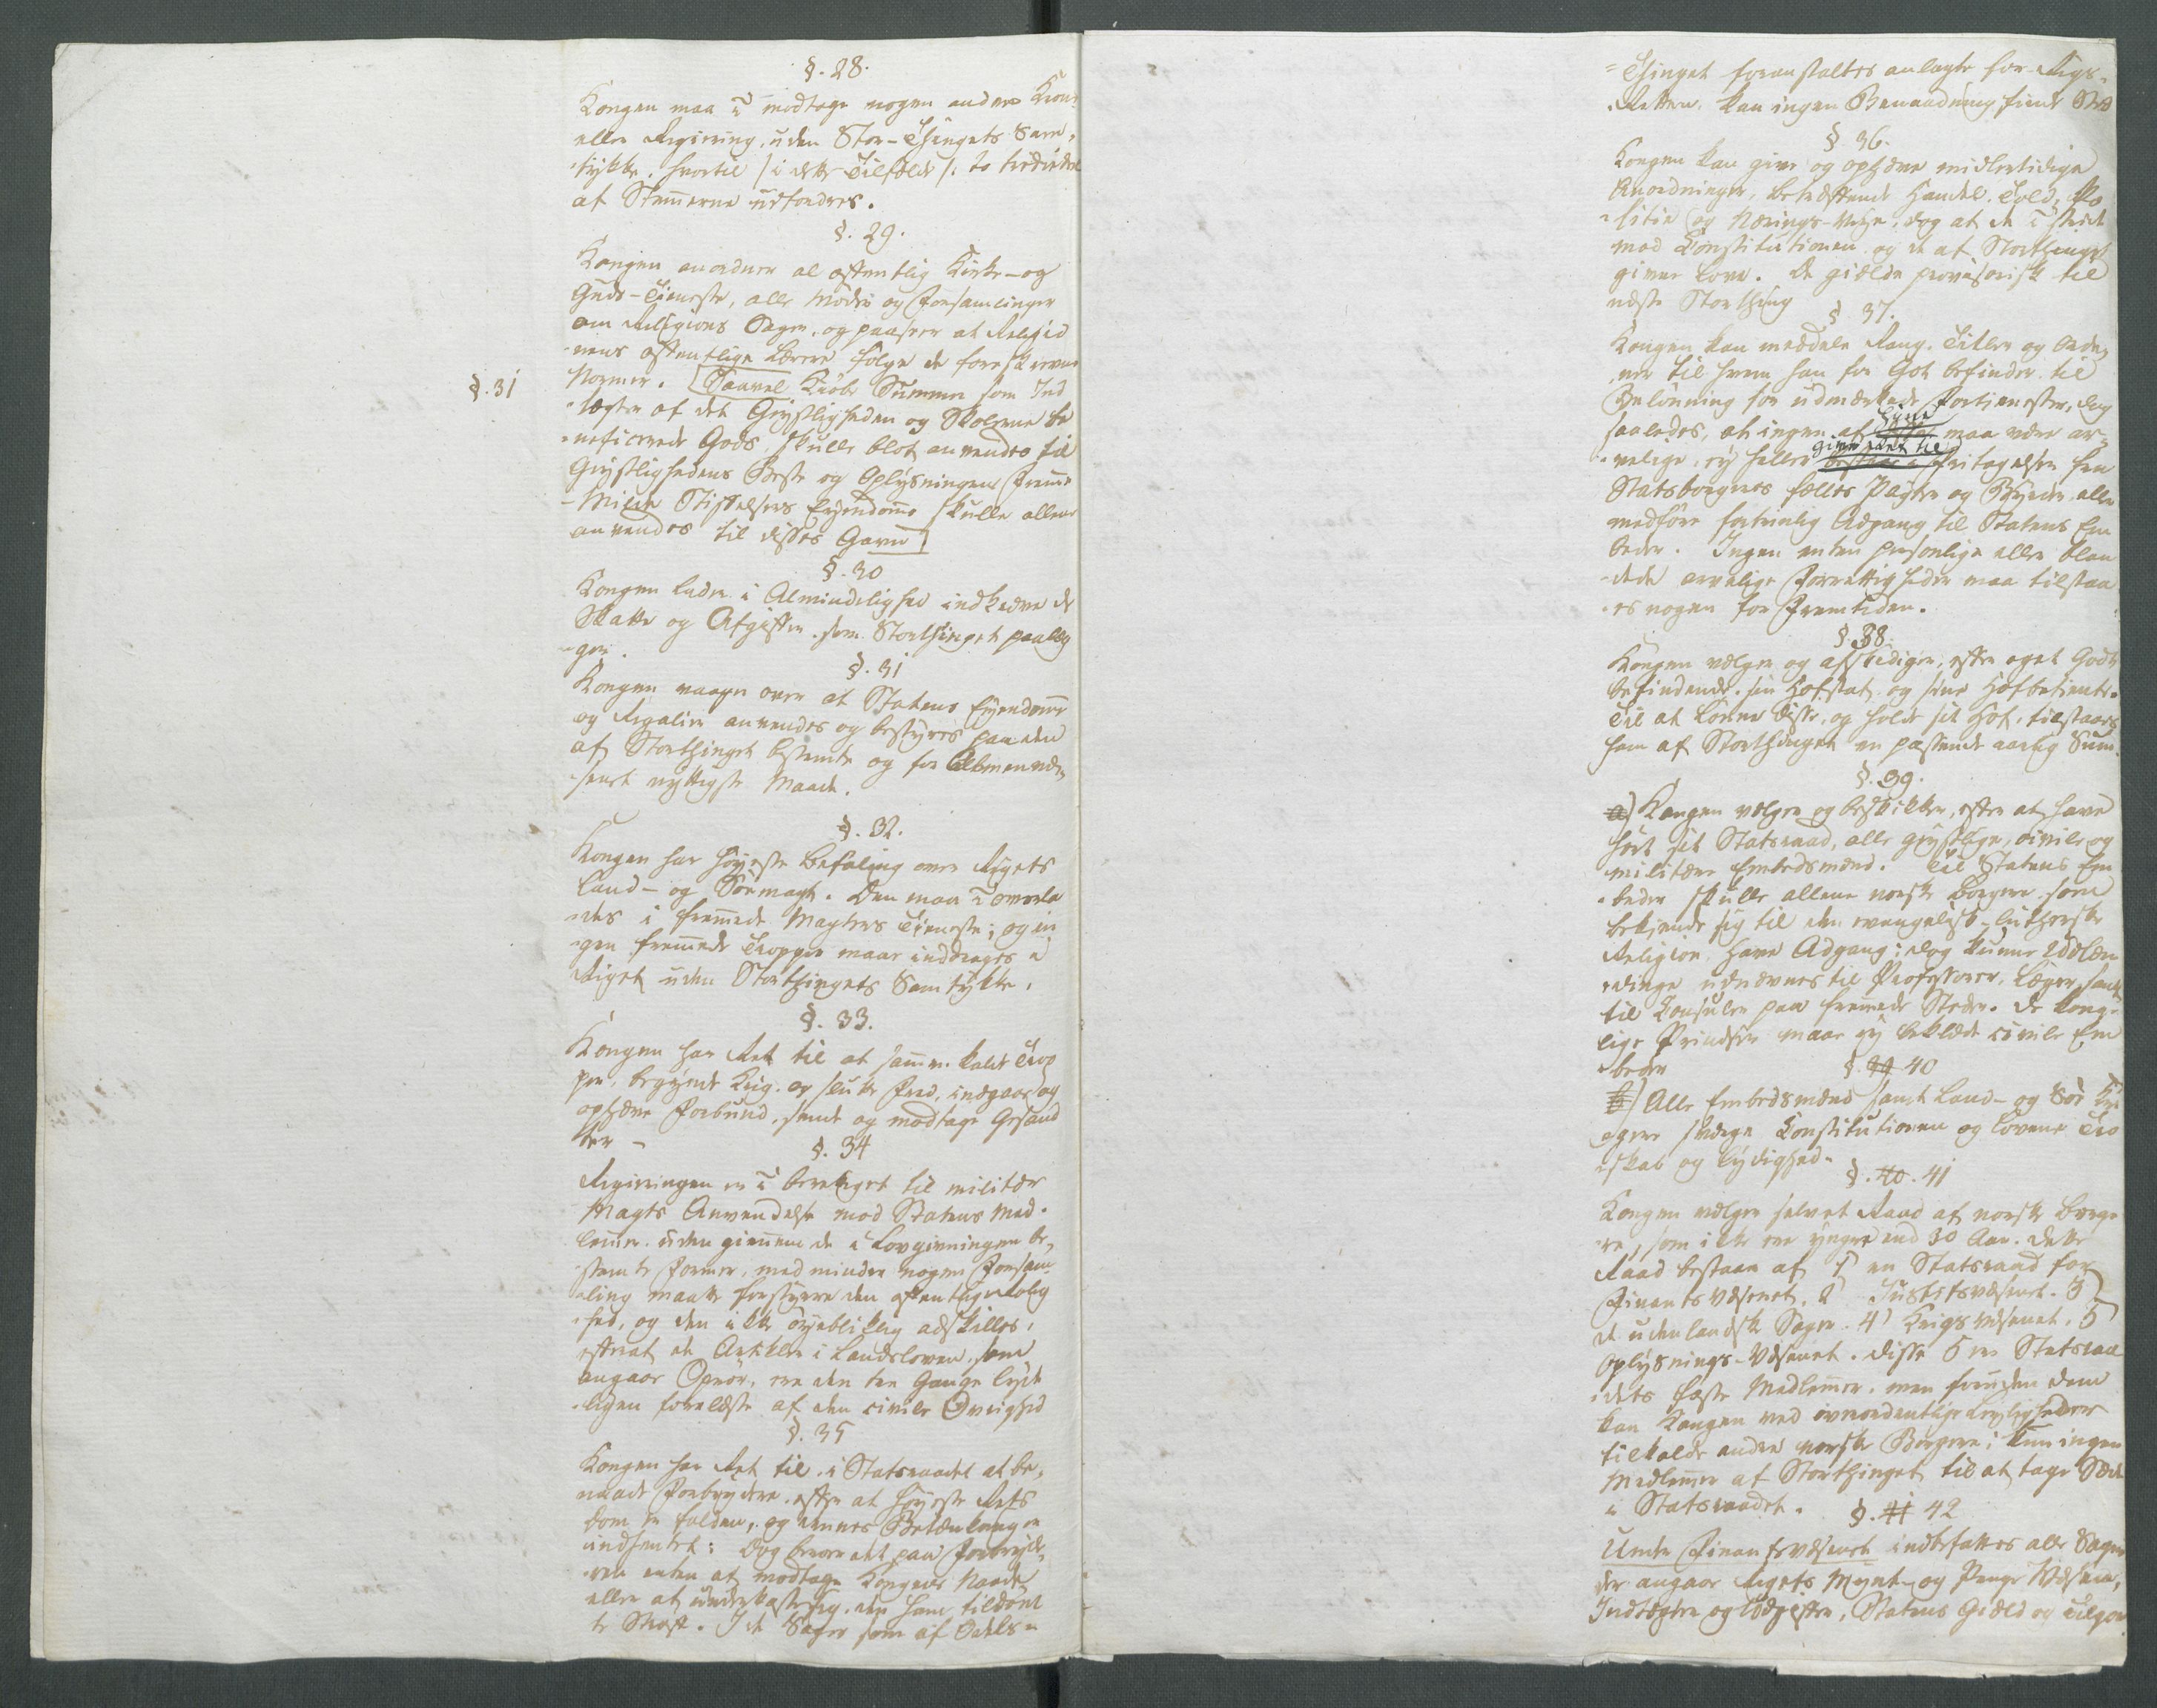 §. 28.
Kongen maa ei modtage nogen anden Krone
eller Regiering, uden Stor-Thingets Sam-
tykke, hvortil /: i dette Tilfælde :/ to trediedele
af Stemmerne udfordres.
§. 29.
Kongen anordner al offentlig Kirke- og
Guds-Tieneste, alle Møder og Forsamlinger
om Religions Sager, og paaseer at Religio
nens offentlige Lærere følge de foreskrevne
Normer. [Saavel Kiøbe Summer som Ind
§. 31
tægter af det Geystligheden og Skolerne be
neficerede Gods, skulle blot anvendes til
Geystlighedens Beste og Oplysningens Fremme
Milde Stiftelsers Eyendomme skulle allene
anvendes til disses Gavn]
§. 30
Kongen lader i Almindelighed indkræve de
Skatte og Afgifter, som Storthinget paalæg
ger.
§. 31
Kongen vaager over at Statens Eyendomme
og Regalier anvendes og bestyres paa den
af Storthinget bestemte og for Almenvæ-
senet nyttigste Maade.
§. 32.
Kongen har høyeste Befaling over Rigets
Land- og Sømagt. Den maa ei overla
des i fremmede Magters Tieneste; og in
gen fremmede Tropper maae inddrages i
Riget uden Storthingets Samtykke.
§. 33.
Kongen har Ret til at sammenkalde Trop
per, begynde Krig og slutte Fred, indgaae og
ophæve Forbund, sende og modtage Gesand
ter -
§. 34
Regieringen er ei berettiget til militær
Magts Anvendelse mod Statens Med-
lemmer, uden giennem de i Lovgivningen be-
stemte Former, med mindre nogen Forsam
ling maatte forstyrre den offentlige Rolig
hed, og den ikke øyeblikkelig adskilles,
efterat de Artikler i Landsloven, som
angaaer Oprør, ere den tre Gange lyde
ligen forelæste af den civile Øvrighed
§. 35
Kongen har Ret til i Statsraadet at be-
naade Forbrydere, efter at høyeste Rets
Dom er falden, og dennes Betænkning er
indhentet: Dog beroer det paa Forbryde-
ren enten at modtage Kongens Naade,
eller at underkaste sig den ham tildømte
Straf. I de Sager som af Odels-
Thinget foranstaltes anlagte for Rigs-
Retten, kan ingen Benaadning finde Sted
§ 36.
Kongen kan give og ophæve midlertidige
Anordninger, betræffende Handel, Told, Po
litie og Nærings-Veye, dog at de ei stride
mod Constitutionen og de af Storthinget
givne Love. De gielde provisorisk til
næste Storthing
§ 37.
Kongen kan meddele Rang, Titler og Orde-
ner til hvem han for Got befinder til
Belønning for udmærkede Fortienester, dog
saaledes, at ingen af maa være ar-
give Ret til
velige, ey heller Fritagelse fra
Statsborgeres fælles Pligter og Byrder, eller
medføre fortrinlig Adgang til Statens Em
beder. Ingen enten personlige eller blan
dede arvelige Forrettigheder maa tilstaa
es nogen for Fremtiden.
§. 38.
Kongen vælger og afskediger, efter eget Godt
befindende, sin Hofstat og sine Hofbetiente.
Til at lønne disse, og holde sit Hof, tilstaaes
ham af Storthinget en passende aarlig Sum.
§. 39.
a) Kongen vælger og beskikker, efter at have
hørt sit Statsraad, alle geystlige, civile og
militære Embedsmænd. Til Statens Em
beder skulle allene norske Borgere som
bekiende sig til den evangelisk-lutherske
Religion have Adgang: Dog kunne Udlæn
dinge udnævnes til Professorer, Læger, samt
til Consuler paa fremmede Steder. De konge-
lige Prindser maae ey beklæde civile Em
beder
§. 40
b) Alle Embedsmænd samt Land- og Søe Kri
gere sværge Constitutionen og Lovene Tro
skab og Lydighed.
§. 40. 41
Kongen vælger selv et Raad af norske Borge
re, som ikke ere yngre end 30 Aar. Dette
Raad bestaaer af 1) en Statsraad for
Finantsvæsenet, 2) Justitsvæsenet. 3)
de udenlandske Sager. 4) Krigsvæsenet. 5)
Oplysnings-Væsenet. Disse 5 ere Statsraa
dets faste Medlemmer, men foruden dem
kan Kongen ved overordentlige Leyligheder
tilkalde andre norske Borgere; kun ingen
Medlemmer af Storthinget til at tage Sæde
i Statsraadet.
§. 41 42
Under Finantsvæsenet indbefattes alle Sager
der angaaer Rigets Mynt- og Penge Væsen,
Indtægter og Udgifter, Statens Gield og